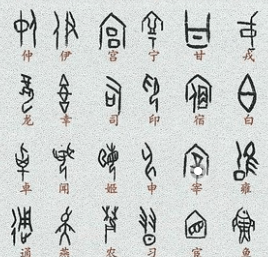 仲 伊 宫 宁 甘 戎
龙 幸 司 印 宿 白
卓 闻 姬 申 宰 雍
通 燕 农 习 宦 鱼